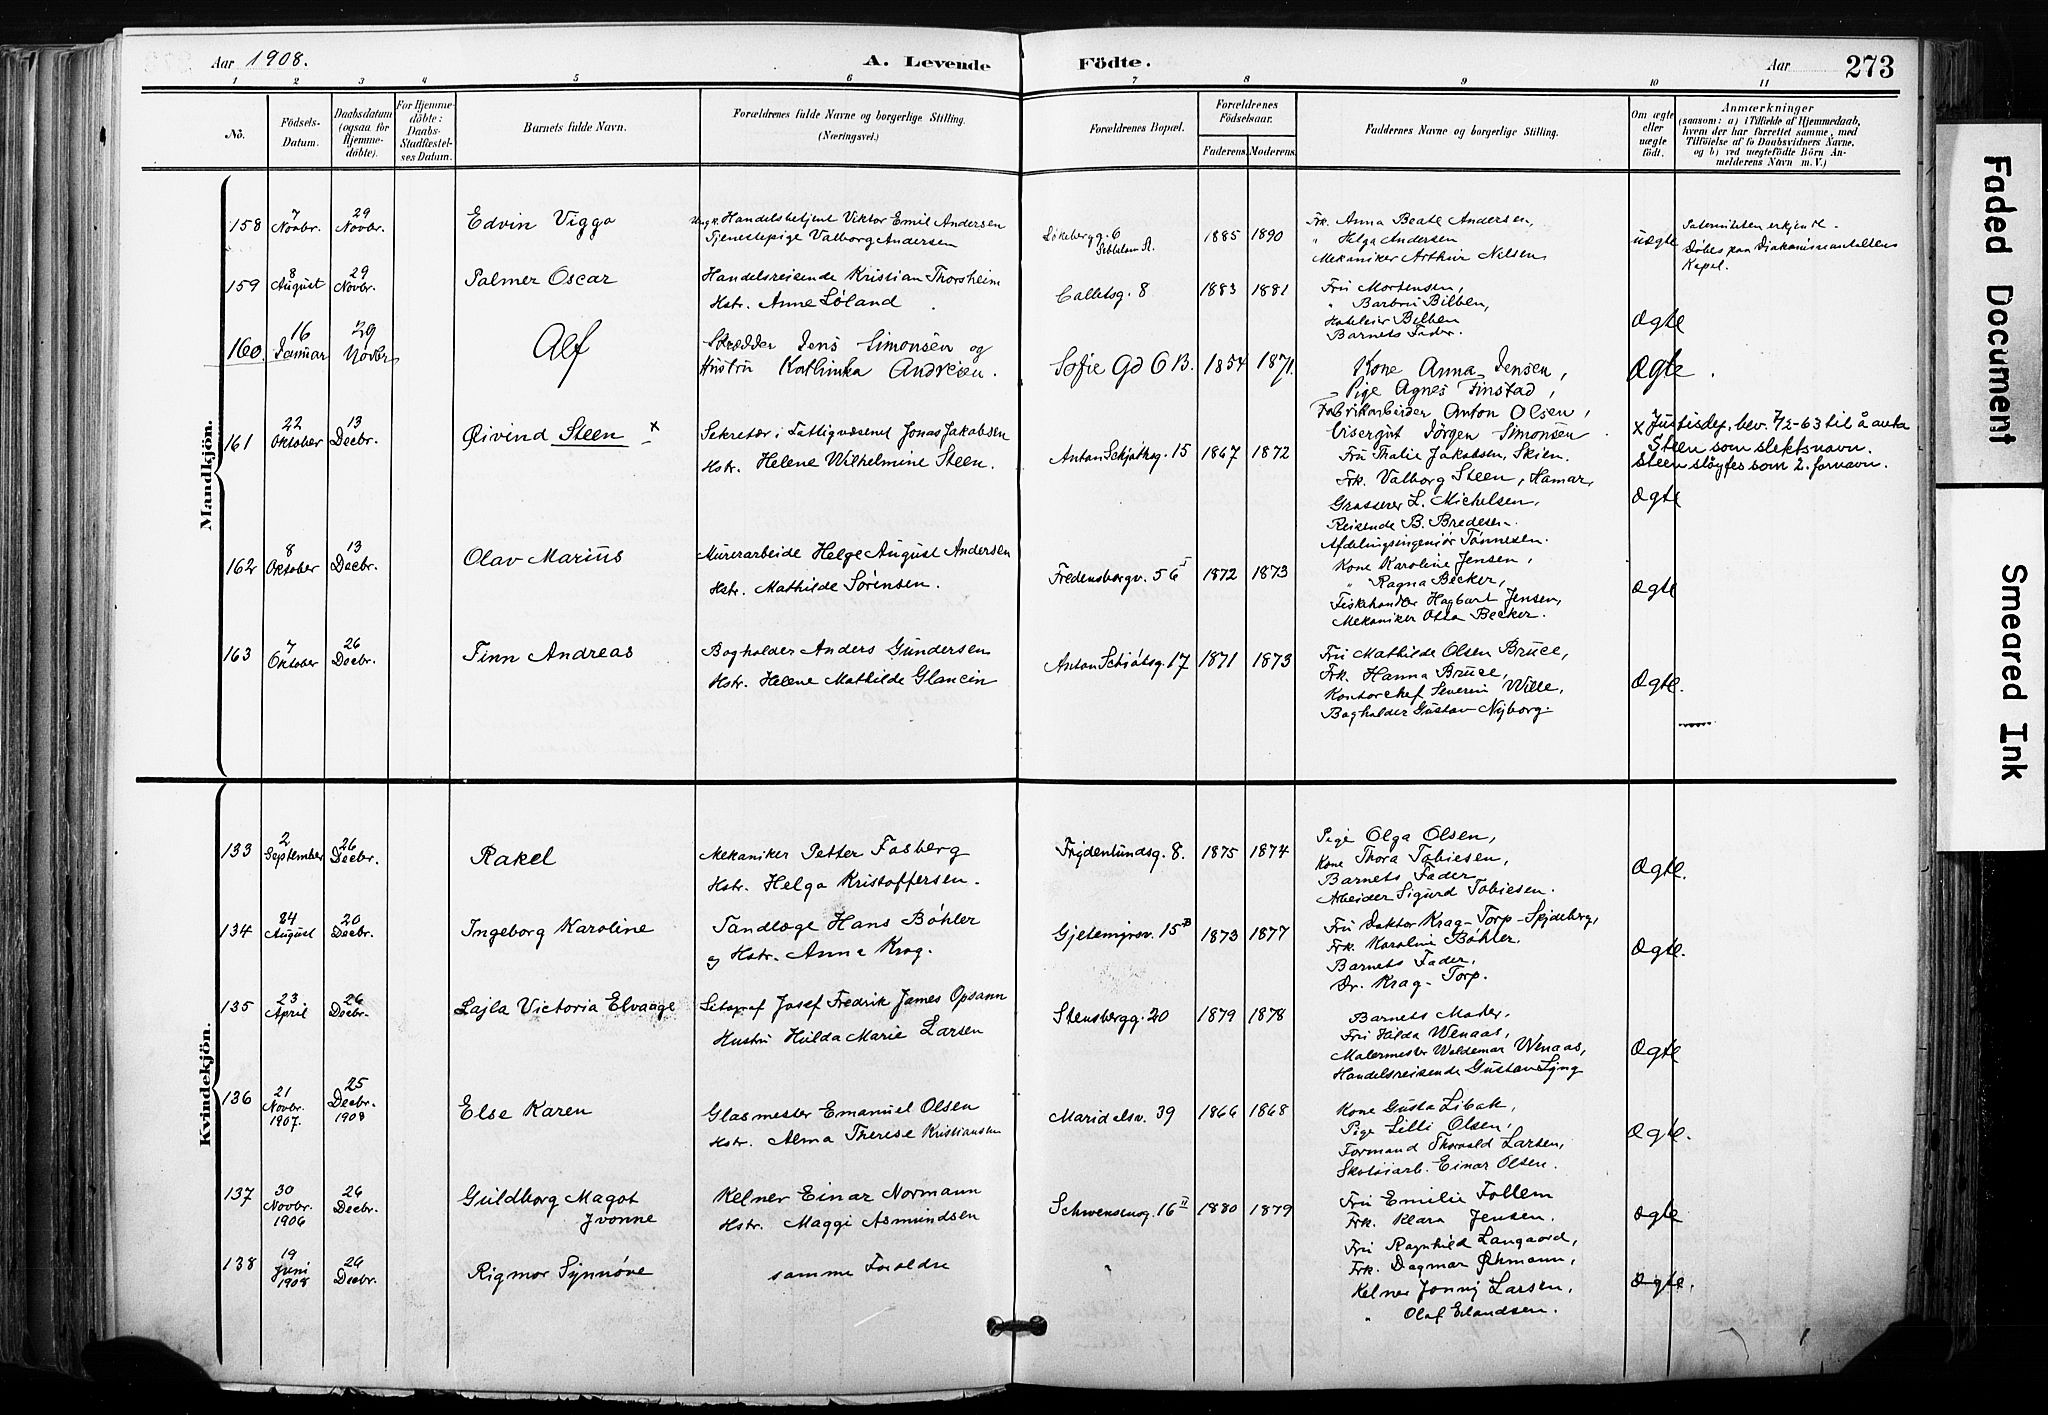 Aar 1908.
A. Levende Födte.
Aar
273
1 2 3 4 5 6 7 8 9 10 11
No.
Födsels-Datum.
Daabsdatum (ogsaa for Hjemme-döbte).
For Hjemme-döbte: Daabs-Stadfæstel-ses Datum.
Barnets fulde Navn.
Forældrenes fulde Navne og borgerlige Stilling. (Næringsvei.)
Forældrenes Bopæl.
Forældrenes Födselsaar.
Faderens. Moderens.
Faddernes Navne og borgerlige Stilling.
Om ægte eller uægte födt.
Anmærkninger
(saasom: a) i Tilfælde af Hjemmedaab, hvem der har forrettet samme, med Tilföielse af to Daabsvidners Navne, og b) ved uægtefödte Börn Anmelderens Navn m. V.)
Mandkjön.
158 7 Novbr. 29 Novbr. Edvin Viggo
Ungk. Handelsbetjent Viktor Emil Andersen
Tjenestepige Valborg Andersen
Løkebergg. 6
1885 1890
Frk. Anna Beate Andersen,
" Helga Andersen
Mekaniker Arthur Nilsen
uægte
Paterniteten erkjendt.
Døbes paa Diakonisseanstaltens
Kapel.
159 8 August 29 Novbr. Palmer Oscar
Handelsreisende Kristian Thorsheim
Hstr. Anne Løland
Calletsg. 8
1883 1881
Fru Mortensen,
" Barbru Bilben,
Hoteleier Bilben
Barnets Fader.
Ægte
160. 16 Januar 29 Novbr Alf
Skrædder Jens Simonsen og
Hustru Kathinka Andresen.
Sofie Gd 6 B.
1854 1871.
Kone Anna Jensen,
Pige Agnes Finstad,
Fabrikarbeider Anton Olsen,
Visergut Jørgen Simonsen
Ægte.
161 22 Oktober 13 Decbr. Øivind Steen x
Sekretær i Fattigvæsenet Jonas Jakobsen
Hstr. Helene Wilhelmine Steen.
Anton Schjøthsg. 15
1867 1872
Fru Thalie Jakobsen, Skien.
Frk. Valborg Steen, Hamar,
Grosserer L. Michelsen,
Reisende B. Bredesen.
Afdelingsingeniør Tønnesen.
Ægte
x Justisdep. bev. 7/2-63 til å anta
Steen som slektsnavn.
Steen sløyfes som 2. fornavn.
162 8 Oktober 13 Decbr. Olav Marius
Murerarbeide Helge August Andersen
Hstr. Mathilde Sørensen.
Fredensborgv. 56 I
1872 1873
Kone Karoline Jensen,
" Ragna Becker,
Fiskehandler Hagbart Jensen,
Mekaniker Otto Becker.
Ægte
163 7 Oktober 26 Decbr. Finn Andreas
Bogholder Anders Gundersen
Hstr. Helene Mathilde Glancin
Anton Schjøtsg. 17
1871 1873
Fru Mathilde Olsen Bruce,
Frk. Hanna Bruce,
Kontorchef Severin Wille,
Bogholder Gustav Nyborg.
Ægte.
Kvindekjön.
133 2 September 26 Decbr. Rakel
Mekaniker Petter Fosberg
Hstr. Helga Kristoffersen.
Frydenlundsg. 8.
1875 1874
Pige Olga Olsen,
Kone Thora Tobiesen,
Barnets Fader
Arbeider Sigurd Tobiesen.
Ægte.
134 24 August 20 Decbr. Ingeborg Karoline
Tandlæge Hans Bøhler
og Hstr. Anna Krag.
Gjetemyrsv. 15 B
1873 1877
Fru Doktor Krag-Torp-Spjdeberg,
Frk. Karoline Bøhler
Barnets Fader,
Dr. Krag-Torp.
Ægte.
135 23 April 26 Decbr. Lajla Victoria Elvaage
Litograf Josef Fredrik James Opsann
Hustru Hilda Marie Larsen
Stensbergg. 20
1879 1878
Barnets Moder,
Fru Hilda Wenaas,
Malermester Waldemar Wenaas,
Handelsreisende Gustav Lyng
Ægte
136 21 Novbr. 1907. 25 Decbr. 1908 Else Karen
Glasmester Emanuel Olsen
Hstr. Alma Therese Kristiansen
Maridalsv. 39
1866 1868
Kone Gusta Libak,
Pige Lilli Olsen,
Formand Thorvald Larsen,
Skotøiarb. Einar Olsen.
Ægte.
137 30 Novbr. 1906 26 Decbr. Guldborg Magot Yvonne
Kelner Einar Normann
Hstr. Maggi Asmundsen
Schwensensg. 16 II
1880 1879
Fru Emilie Follem
Frk. Klara Jensen.
Ægte
138 19 Juni 1908 26 Decbr. Rigmor Synnøve
samme Foreldre
"
Fru Ragnhild Langaard,
Frk. Dagmar Øhmann,
Kelner Jonny Larsen,
" Olaf Erlandsen.
Ægte.
Faded Document
Smeared Ink